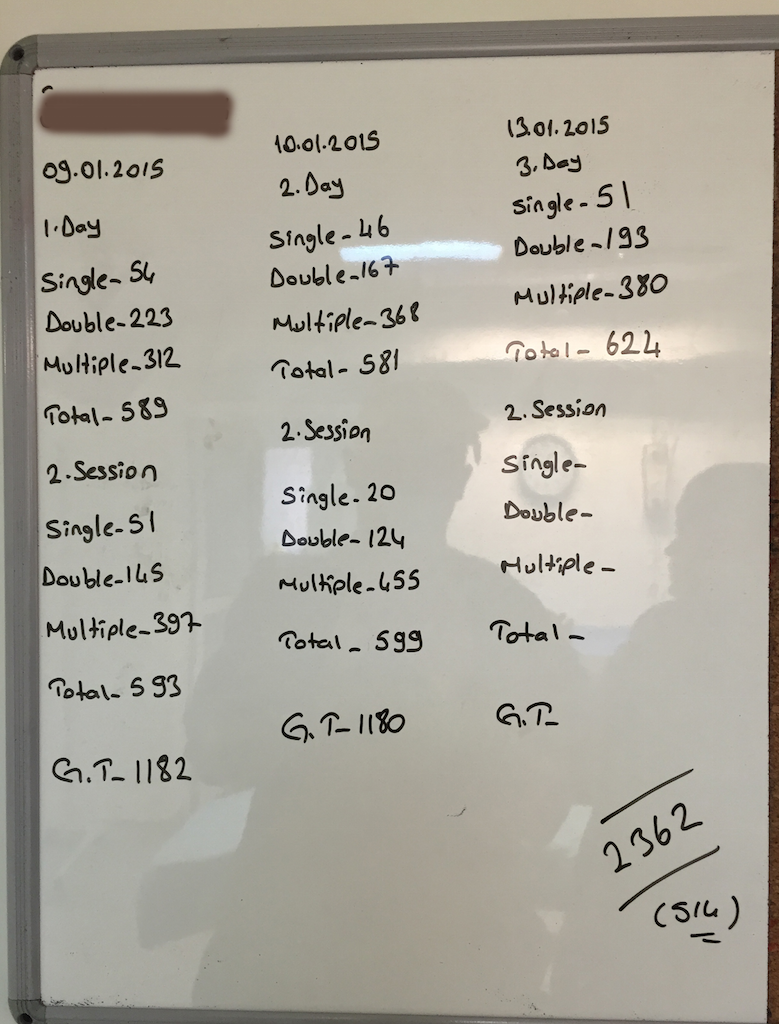 09.01.2015
1.Day
Single-54
Double-223
Multiple-312
Total-589
2.Session
Single-51
Double-145
Multiple-397
Total-593
G.T-1182
10.01.2015
2.Day
Single-46
Double-167
Multiple-368
Total-581
2.Session
Single-20
Double-124
Multiple-455
Total-599
G.T-1180
13.01.2015
3.Day
Single-51
Double-193
Multiple-380
Total-624
2.Session
Single-
Double-
Multiple-
Total-
G.T-
2362
(514)